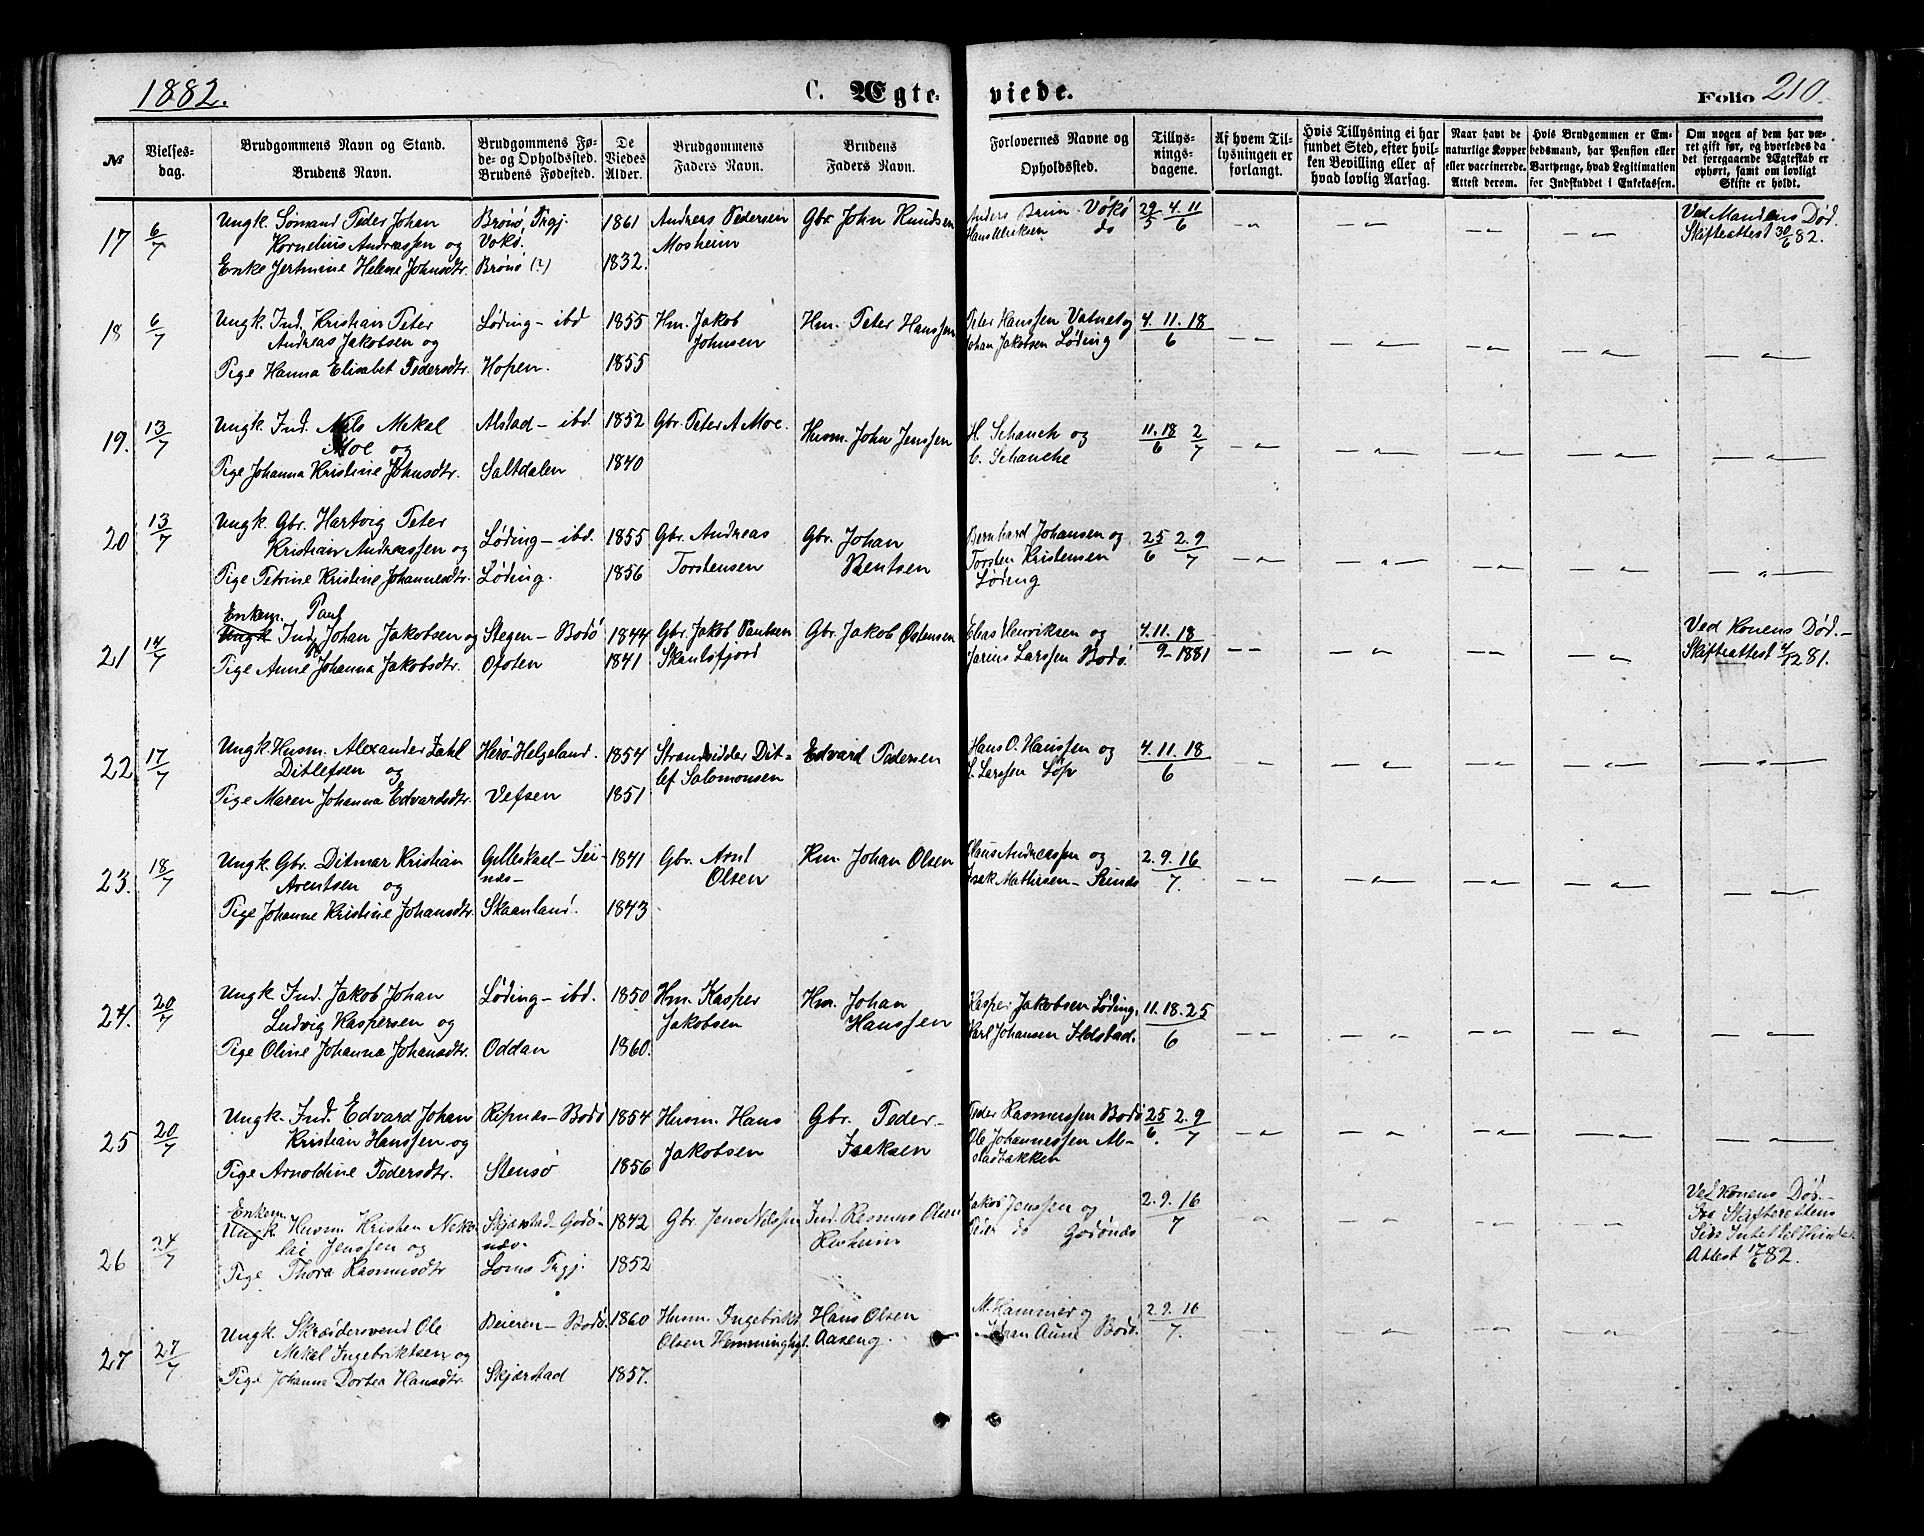 1882. C. Ægte- viede. Folio 210.
№
Vielses-
dag.
Brudgommens Navn og Stand.
Brudens Navn.
Brudgommens Fø-
de- og Opholdssted.
Brudens Fødested.
De
Viedes
Alder.
Brudgommens
Faders Navn.
Brudens
Faders Navn.
Forlovernes Navne og
Opholdssted.
Tillys-
nings-
dagene.
Af hvem Til-
lysningen er
forlangt.
Hvis Tillysning ei har
fundet Sted, efter hvil-
ken Bevilling eller af
hvad lovlig Aarsag.
Naar havt de
naturlige Kopper
eller vaccinerede.
Attest derom.
Hvis Brudgommen er Em-
bedsmand, har Pension eller
Vartpenge, hvad Legitimation
for Indskuddet i Enkekassen.
Om nogen af dem har væ-
ret gift før, og hvorledes da
det foregaaende Ægteskab er
ophørt, samt om lovligt
Skifte er holdt.
17 6/7
Ungk. Sømand Peder Johan
Kornelius Andreassen og
Enke Jertmine Helene Johnsdtr.
Brønø, Prgj.
Vokø.
Brønø (?)
1861
1832.
Andreas Pedersen
Mosheim
Gbr John Knudsen
Anders Brun Vökö
Hans Ulriksen do
29/5 4.11/6
Ved Mandens Død.
Skifteattest 30/6 82.
18 6/7
Ungk. Ind. Kristian Peter
Andreas Jakobsen og
Pige Hanna Elisabet Pedersdtr.
Løding - ibd
Hopen.
1855
1855
Hm. Jakob
Johnsen
Hm. Peter Hanssen
Peter Hanssen Vatnet og
Johan Jakobsen Løding
4. 11. 18/6
19. 13/7
Ungk. Ind. Nils Mekal
Moe og
Pige Johanna Kristine Johnsdtr.
Alstad - ibd.
Saltdalen
1852
1840
Gbr. Peter A Moe.
Husm. John Jenssen
H. Schanch og
C. Schanche
11.18/6 2/7
20 13/7
Ungk. Gbr. Hartvig Peter
Kristian Andreassen og
Pige Petrine Kristine Johannesdtr.
Løding - ibd.
Løding.
1855
1856
Gbr. Andreas
Torstensen
Gbr. Johan
Bentsen
Bernhard Johansen og
Torsten Kristensen
Løding
25/6 2.9/7
21 14/7
Enkem. Paul
Ungk Ind. Johan Jakobsen og
Pige Anne Johanna Jakobsdtr.
Stegen - Bodø
Ofoten
1844
1841
Gbr. Jakob Paulsen
Skaulsfjord
Gbr. Jakob Østensen
Elias Henriksen og
Jarius Larssen Bodø.
4. 11. 18
9 - 1881
Ved Konens Død. -
Skifteattest 4/12 81.
22 17/7
Ungk. Husm. Alexander Zahl
Ditlefsen og
Pige Maren Johanna Edvardsdtr.
Herø - Helgeland.
Vefsen
1854
1851
Strandsidder Dit-
lef Salomonsen
Edvard Pedersen
Hans O. Hanssen og
Larssen Løp
4. 11. 18/6
23. 18/7
Ungk. Gbr. Ditmar Kristian
Arentsen og
Pige Johanne Kristine Johansdtr.
Gilleskaal - Sei-
næs -
Skaanland.
1841
1843
Gbr. Arnt
Olsen
Hm. Johan Olsen
Claus Andreassen og
Isak Mathisen - Seinæs
2. 9. 16/7.
24. 20/7
Ungk. Ind. Jakob Johan
Ludvig Kaspersen og
Pige Oline Johanna Johansdtr.
Løding - ibd.
Oddan
1850
1860.
Hm. Kasper
Jakobsen
Hm. Johan
Hanssen
Kasper Jakobsen Løding.
Karl Johansen Ildstad.
11. 18. 25/6
25 20/7
Ungk. Ind. Edvard Johan
Kristian Hanssen og
Pige Arnoldine Pedersdtr.
Ripnæs - Bodø
Stensø
1854
1856
Husm. Hans
Jakobsen
Gbr. Peder
Isaksen
Peder Rasmussen Bodø
Ole Johannessen Al-
stadbakken
25/6. 2.9/7
26 24/7
Enkem.
Ungk. Husm. Kristen Neko-
lai Jenssen og
Pige Thora Rasmusdtr
Skjerstad - Godø-
næs -
Loms Prgj.
1842
1852
Gbr. Jens Nilssen
Ind. Rasmus Olsen
Jakob Jenssen og
Peder do Godønæs
2. 9. 16/7
Ved Konens Død. -
Fra Skifterettens
Side Intet til Hinder
Attest 17/6 82.
27 27/7
Ungk. Skrædersvend Ole
Mekal Ingebriktsen og
Pige Johanna Dortea Hansdtr.
Beieren - Bodø.
Skjærstad
1860
1857.
Husm. Ingebrikt
Olsen Hemminghyt.
Hans Olsen
Aaseng.
M. Hammer og
Johan Aune Bodø.
2. 9. 16/7.